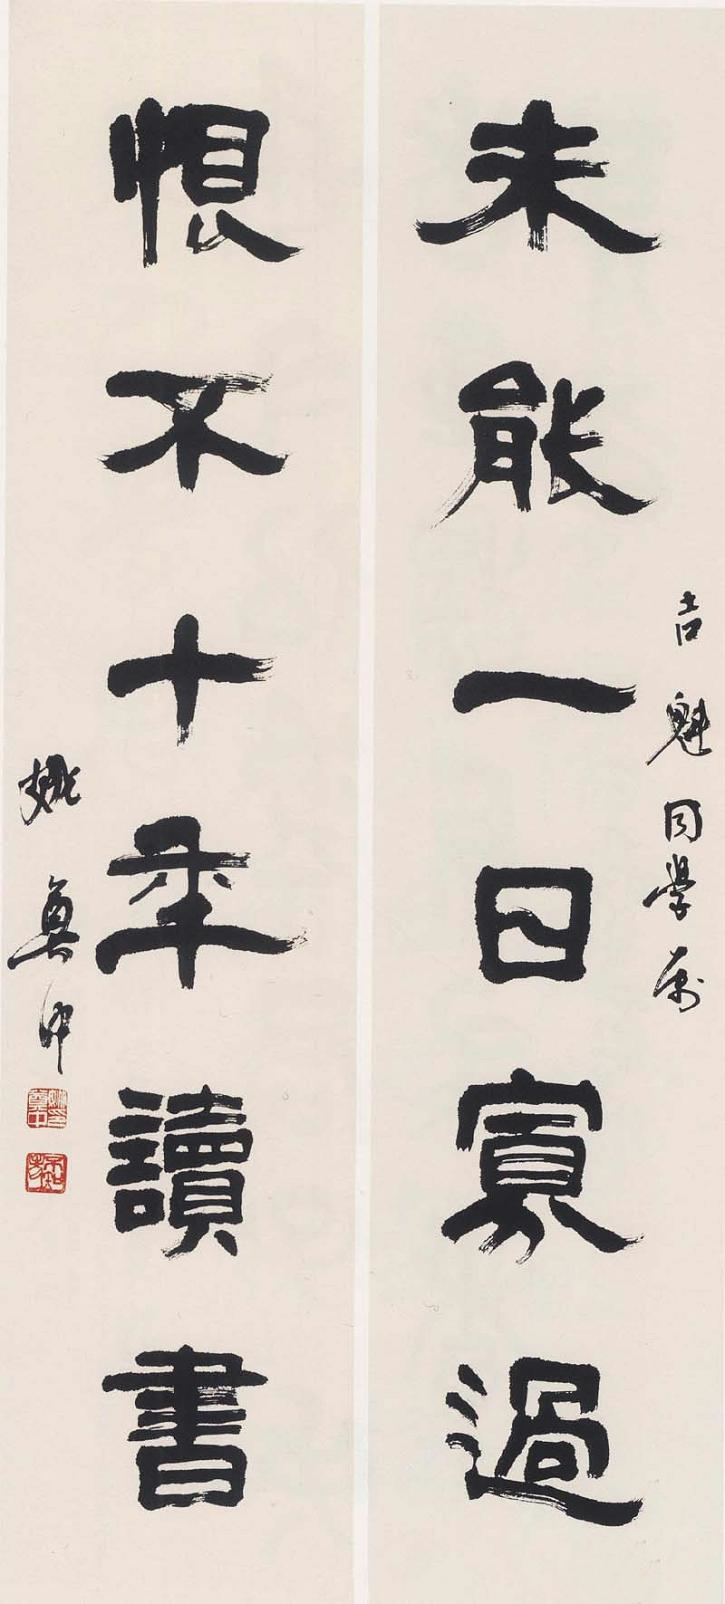 未能一日寡過
吉魁同學屬
恨不十年讀書
姚奠中